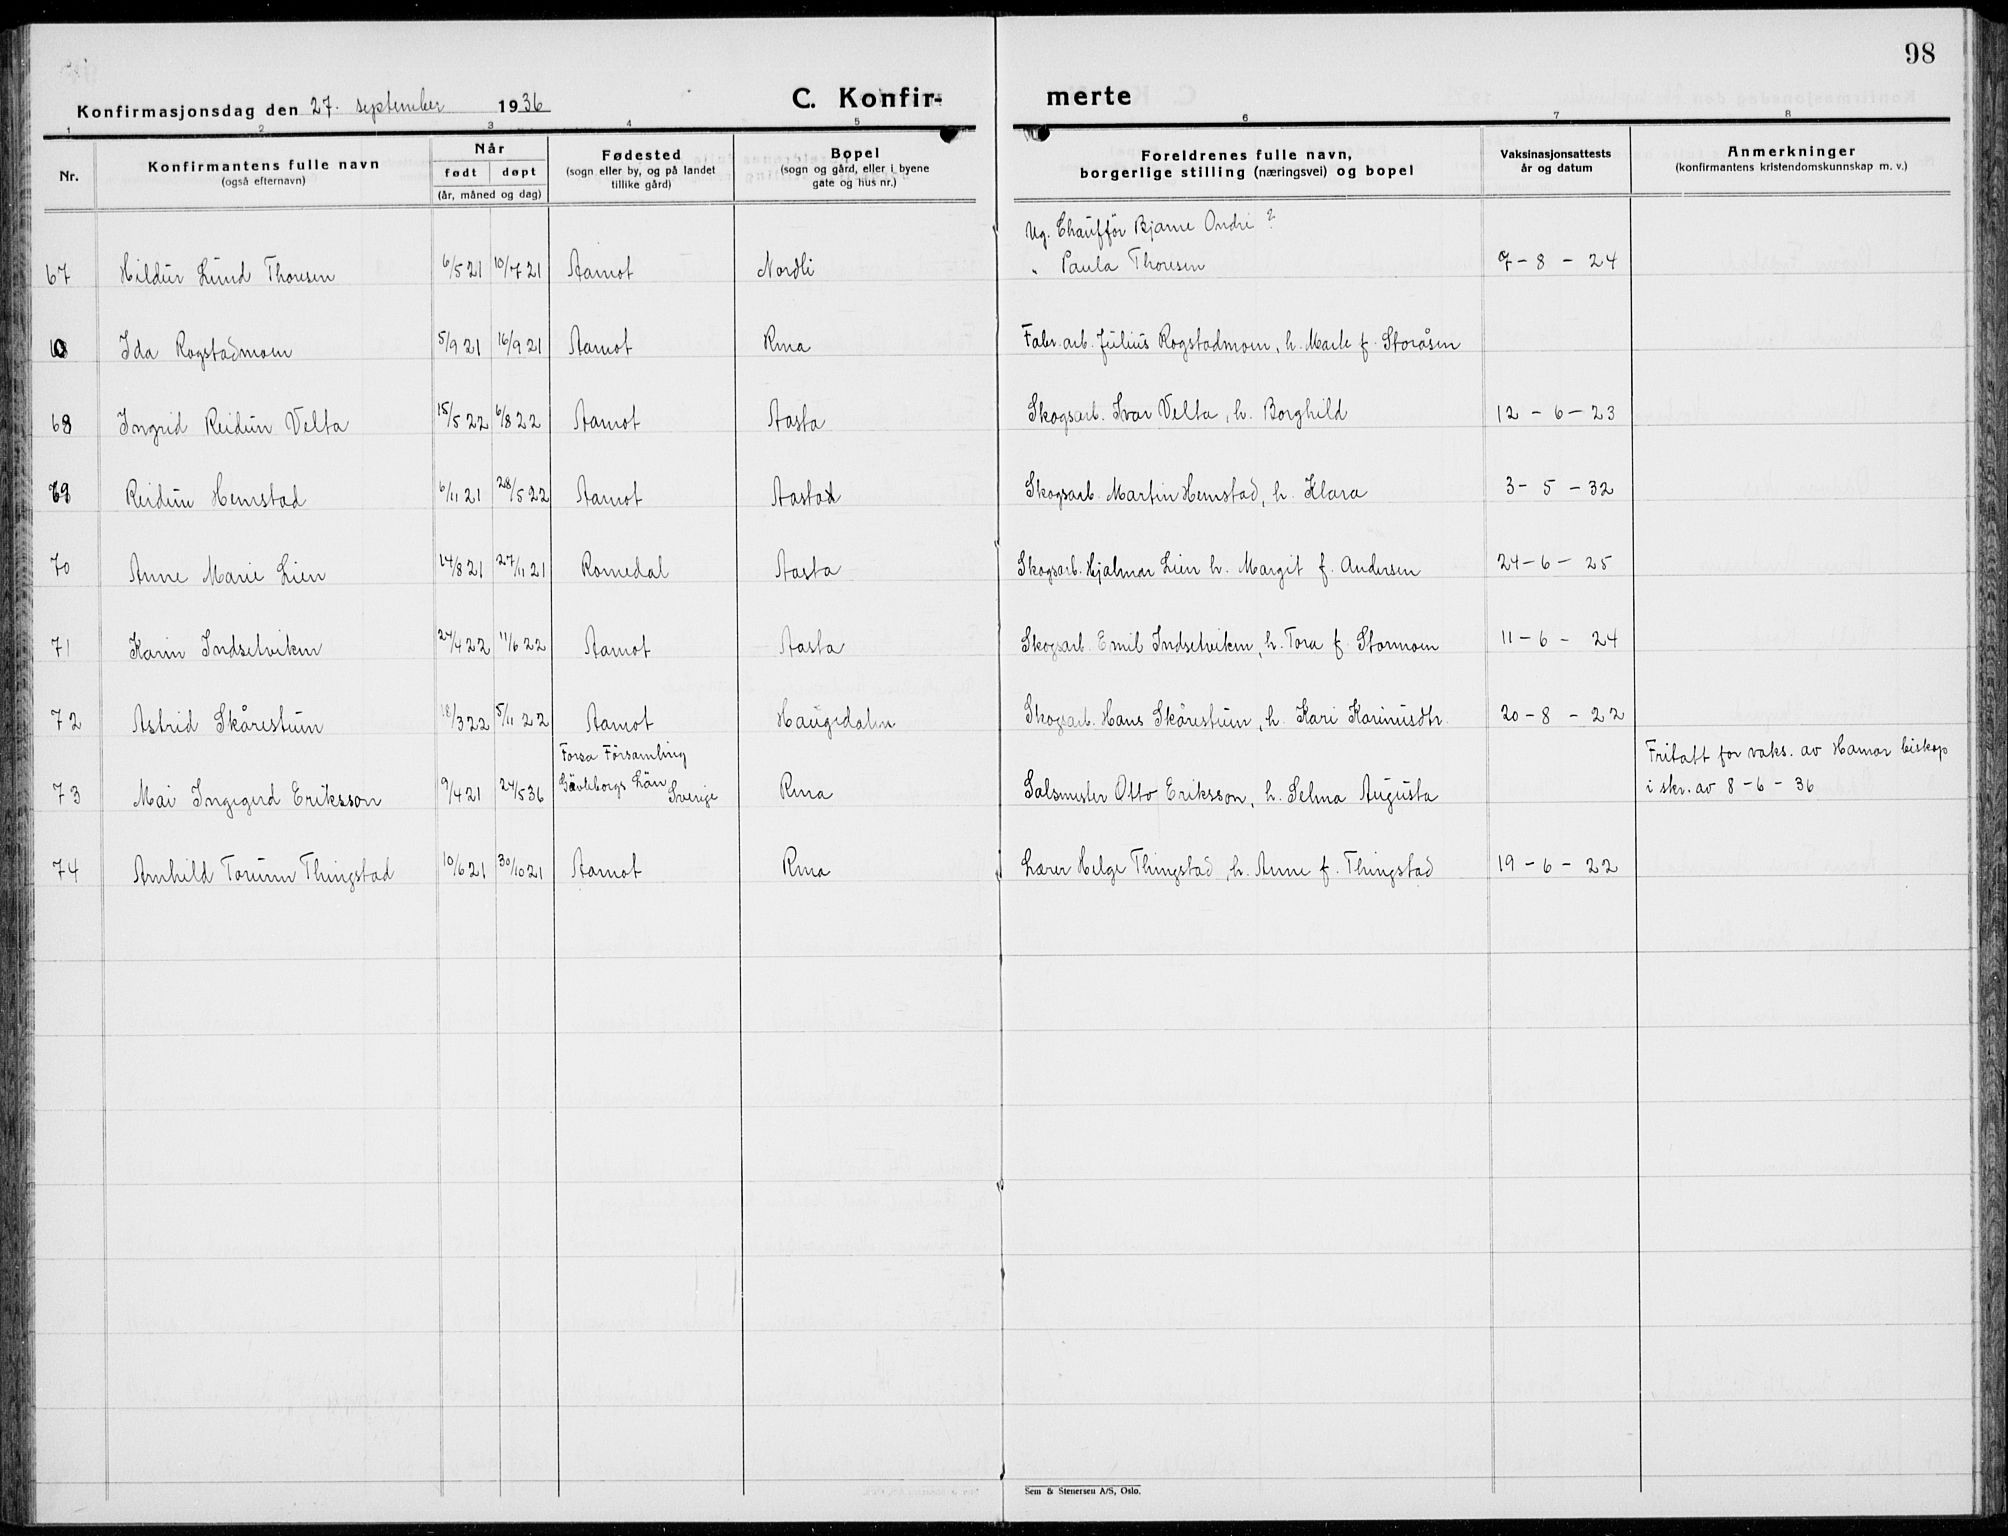 98
Konfirmasjonsdag den 27. september 1936
C. Konfir-
merte
1 2 3 4 5 6 7 8
Nr.
Konfirmantens fulle navn
(også efternavn)
Når
født døpt
(år, måned og dag)
Fødested
(sogn eller by, og på landet
tillike gård)
Bopel
(sogn og gård, eller i byene
gate og hus nr.)
Foreldrenes fulle navn,
borgerlige stilling (næringsvei) og bopel
Vaksinasjonsattests
år og datum
Anmerkninger
(konfirmantens kristendomskunnskap m. v.)
Ug. Chauffør Bjarne Ondri ?
67 Hildur Lund Thoresen 6/5 21 10/7 21 Aamot Nordli " Paula Thoresen 7-8-24
0 Ida Rogstadmoen 5/9 21 16/9 21 Aamot Rena Fabr.arb. Julius Rogstadmoen, h. Marte f. Storåsen
68 Ingrid Reidun Velta 15/5 22 6/8 22 Aamot Aasta Skogsarb. Ivar Velta, h. Borghild 12-6-23
69 Reidun Hemstad 6/11 21 28/5 22 Aamot Aasta Skogsarb. Martin Hemstad, h. Klara 3-5-32
70 Anne Marie Lien 14/8 21 27/11 21 Romedal Aasta Skogsarb. Hjalmar Lien h. Margit f. Andersen 24-6-25
71 Karin Indsetviken 24/4 22 11/6 22 Aamot Aasta Skogsarb. Emil Indsetviken, h. Tora f. Stormoen 11-6-24
72 Astrid Skårestuen 18/3 22 5/11 22 Aamot Haugedalen Skogsarb. Hans Skårestuen, h. Kari Karinusdtr. 20-8-22
Forsa Församling
Fritatt for vaks. av Hamar biskop
73 Mai Ingegerd Eriksson 9/4 21 24/5 36 Gävleborgs Län Sverige Rena Salsmester Otto Eriksson, h. Selma Augusta i skr. av 8-6-36
74 Arnhild Torunn Thingstad 10/6 21 30/10 21 Aamot Rena Lærer Helge Thingstad, h. Anne f. Thingstad 19-6-22
Sem & Stenersen A/S, Oslo.